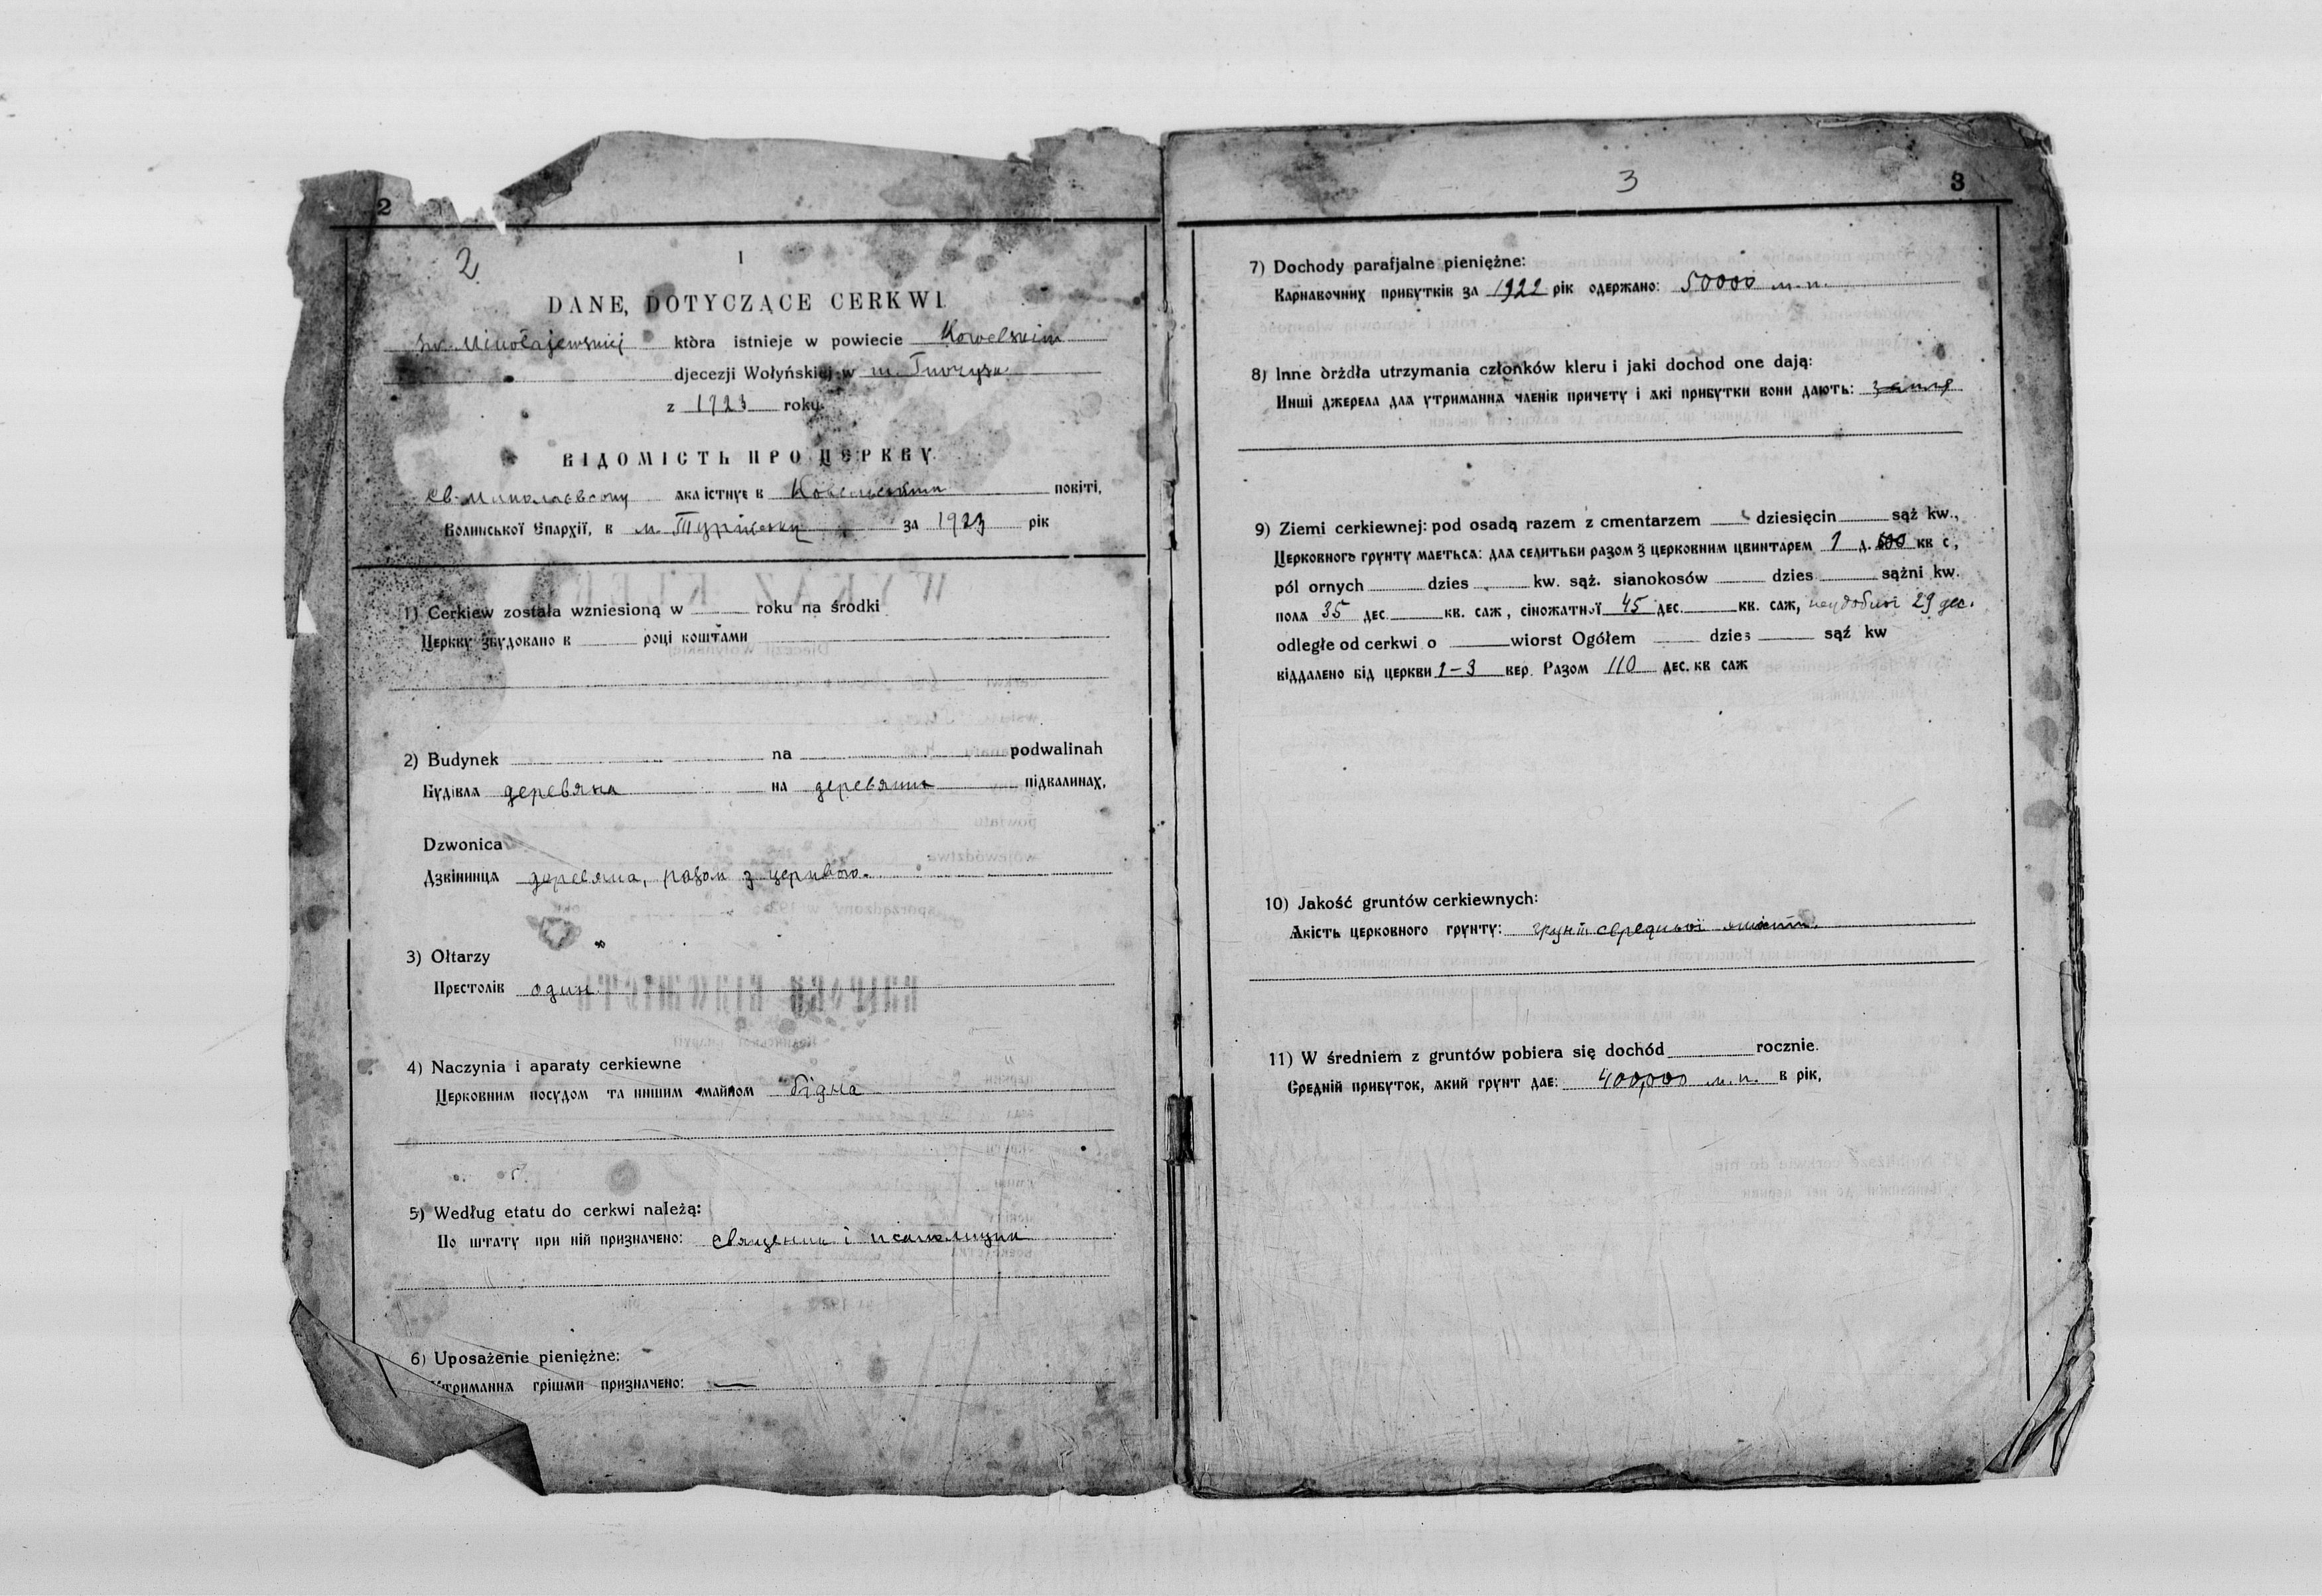 2
2
I
DANE, DOTYCZĄCE CERKWI
św. Mikołajewskiej która istnieje w powiecie Kowelskim
djecezji Wołyńskiej w m.
z 1923 roku.
ВІДОМІСТЬ ПРО ЦЕРКВУ
св. Миколаєвську яка істнує в Ковельським повіті,
Волинської Єпархії, в м. Турійську за 1923 рік
1) Cerkiew została wzniesioną w roku na środki
Церкву збудовано в році коштами
2) Budynek na podwalinah
Будівля деревяна на деревяних підвалинах,
Dzwonica
Дзвіниця деревяна, разом з церквою.
3) Ołtarzy
Престолів один
4) Naczynia i aparaty cerkiewne
Церковним посудом та иншим майном бідна
5) Według etatu do cerkwi należą:
По штату при ній призначено: священик і псаломщик
6) Uposażenie pieniężne:
Утримання грішми призначено: —
3
3
7) Dochody parafjalne pieniężne:
Карнавочних прибутків за 1922 рік одержано: 50000 м.п.
8) Inne òrżdła utrzymania członków kleru i jaki dochod one dają:
Инші джерела для утримання членів причету і які прибутки вони дають: земля
9) Ziemi cerkiewnej: pod osadą razem z cmentarzem dziesięcin sąż kw.,
Церковного грунту маеться: для селитьби разом з церковним цвинтарем 1 д. 600 кв с,
pól ornych dzies kw. sąż. sianokosów dzies sążni kw.
поля 35 дес. кв. саж, сіножатної 45 дес. кв. саж, неудобної 29 дес.
odległe od cerkwi o wiorst Ogółem dzies sąź kw
віддалено від церкви 1-3 вер. Разом 110 дес. кв саж
10) Jakość gruntów cerkiewnych:
Якість церковного грунту: грунт середньої якости.
11) W średniem z gruntów pobiera się dochód rocznie.
Средній прибуток, який грунт дає: 400,000 м.п. в рік,